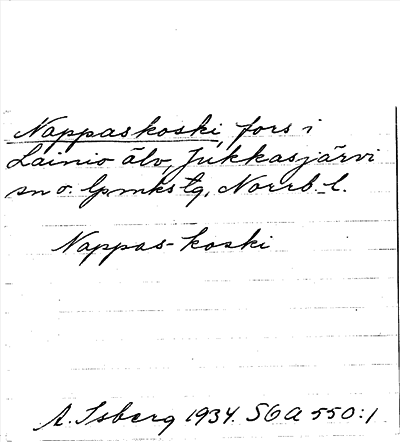 Nappaskoski, fors i
Lainio älv, Jukkasjärvi
sn o. lpmkstg, Norrb. l.
Nappas-koski
A. Isberg 1934. SOA 550:1